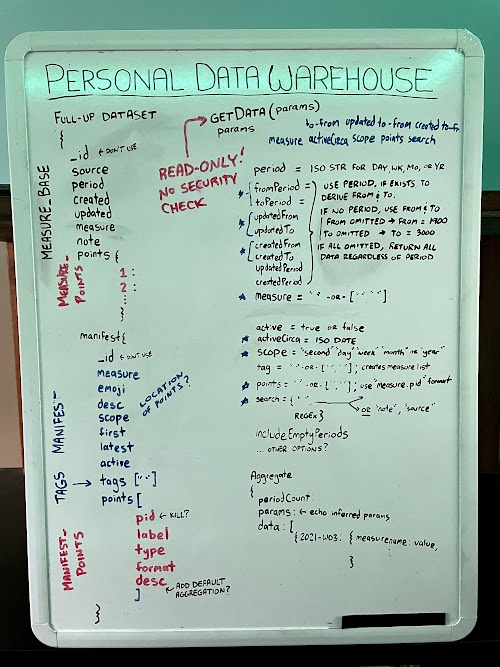 PERSONAL DATA WAREHOUSE
FULL-UP DATASET
{
_id ← DON'T USE
source
period
created
updated
measure
note
points {
1 :
2 :
:
}
MEASURE_BASE
MEASURE_POINTS
manifest {
_id ← DON'T USE
measure
emoji
desc
scope
first
latest
active
tags ["..."]
points [
pid ← KILL?
label
type
format
desc
]
}
LOCATION OF POINTS?
ADD DEFAULT AGGREGATION?
MANIFEST-
TAGS →
MANIFEST_POINTS
READ-ONLY!
NO SECURITY
CHECK
GETDATA (params)
params
to-from updated to-from created to-fr
measure activeCirca scope points search
period = ISO STR FOR DAY, WK, MO, OR YR
fromPeriod =
toPeriod =
updatedFrom
updatedTo
createdFrom
createdTo
updatedPeriod
createdPeriod
USE PERIOD, IF EXISTS TO
DERIVE FROM & TO.
IF NO PERIOD, USE FROM & TO
FROM OMITTED → FROM = 1900
TO OMITTED → TO = 3000
IF ALL OMITTED, RETURN ALL
DATA REGARDLESS OF PERIOD
measure = " " -OR- [" "," "]
active = true or false
activeCirca = ISO DATE
scope = "second" "day" "week" "month" or "year"
tag = " " -OR- [" "," "] ; creates measure list
points = " " -OR- [" "," "] ; use "measure.pid" format
search = { " "
or "note", "source"
REGEX}
includeEmptyPeriods
... OTHER OPTIONS?
Aggregate
{
periodCount
params: ← echo inferred params
data: [
{2021-W03: { measurename: value,
:
}